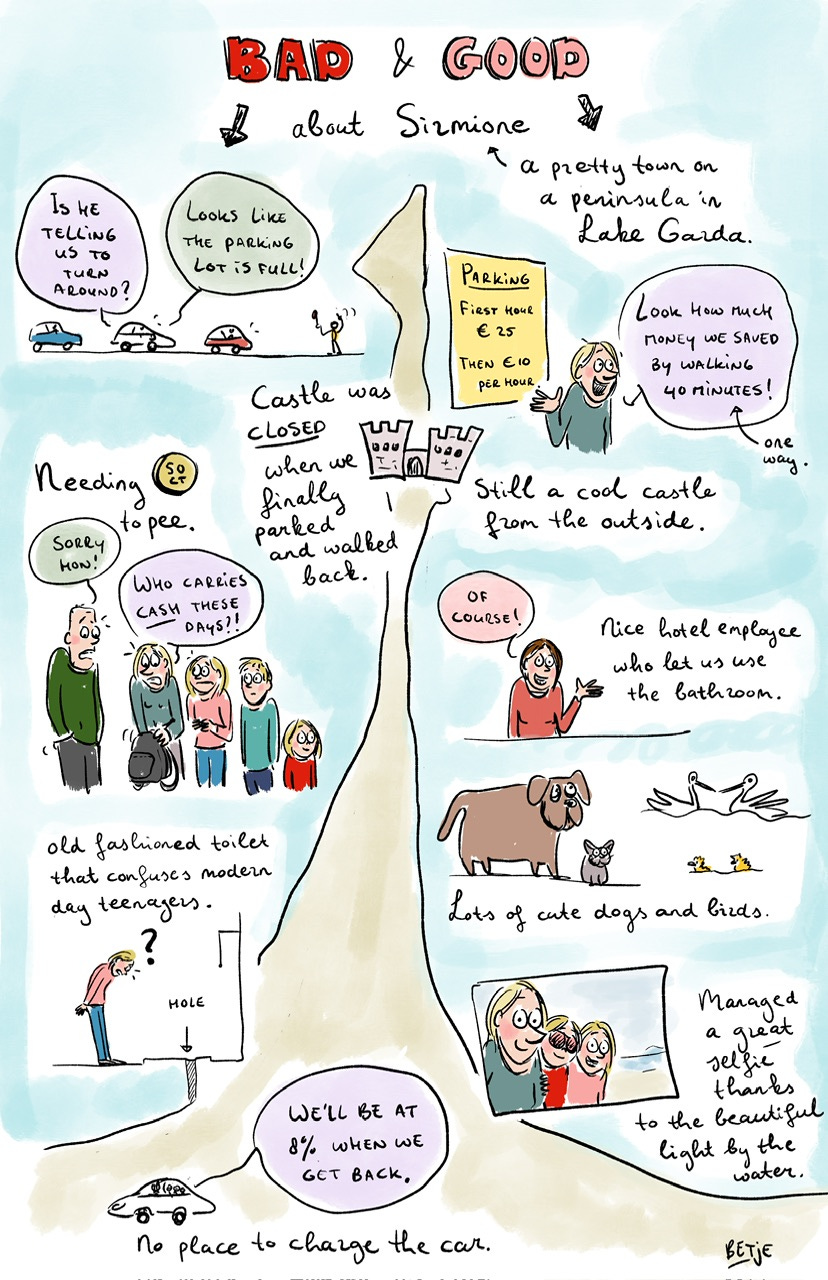 BAD & GOOD
about Sirmione
a pretty town on
a peninsula in
Lake Garda.
IS HE
TELLING
US TO
TURN
AROUND?
LOOKS LIKE
THE PARKING
LOT IS FULL!
PARKING
FIRST HOUR
€ 25
THEN €10
PER HOUR.
LOOK HOW MUCH
MONEY WE SAVED
BY WALKING
40 MINUTES!
one
way.
Castle was
CLOSED
when we
finally
parked
and walked
back.
Still a cool castle
from the outside.
Needing
50
CT
to pee.
SORRY
HON!
WHO CARRIES
CASH THESE
DAYS?!
OF
COURSE!
Nice hotel employee
who let us use
the bathroom.
old fashioned toilet
that confuses modern
day teenagers.
?
HOLE
Lots of cute dogs and birds.
Managed
a great
selfie
thanks
to the beautiful
light by the
water.
WE'LL BE AT
8% WHEN WE
GET BACK.
No place to charge the car.
BETJE